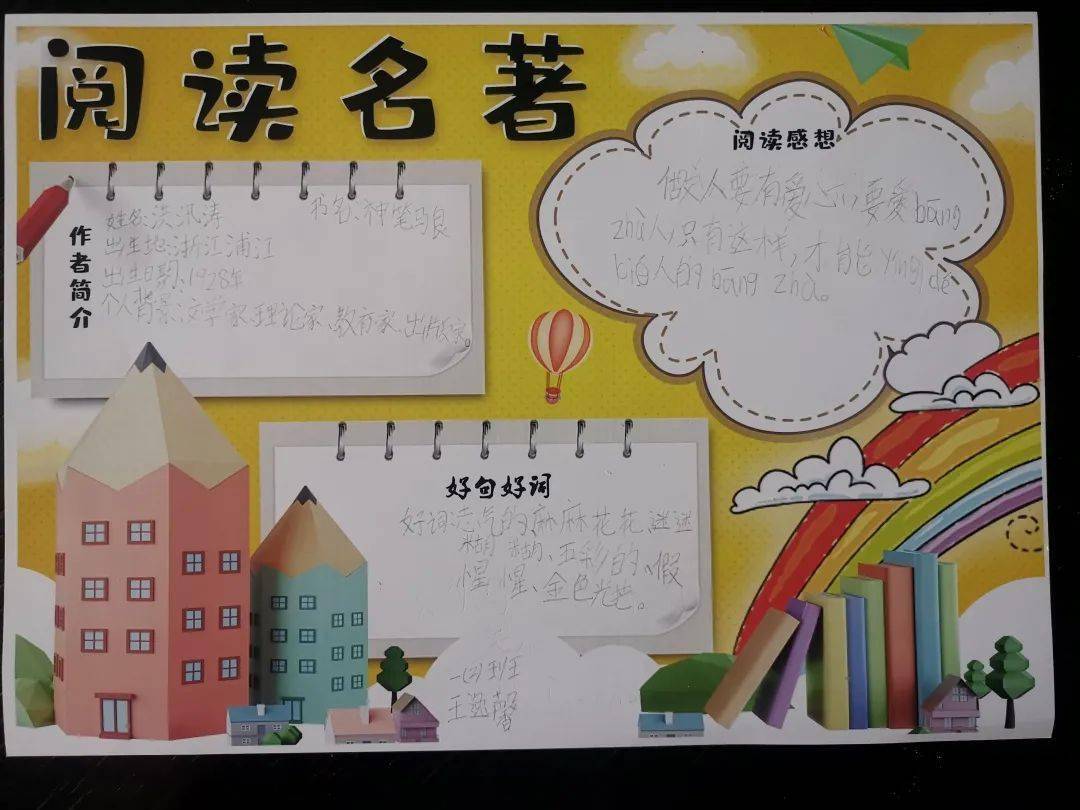 阅读名著
作者简介
姓名:洪汛涛 书名:神笔马良
出生地:浙江浦江
出生日期:1928年
个人背景:文学家、理论家、教育家、出版家。
阅读感想
做人要有爱心,要爱bāng
zhù人,只有这样,才能yíng dé
bié人的bāng zhù。
好句好词
好词:志气的、麻麻花花、迷迷
糊糊、五彩的、假
惺惺、金色光芒。
一(2)班
王逸馨